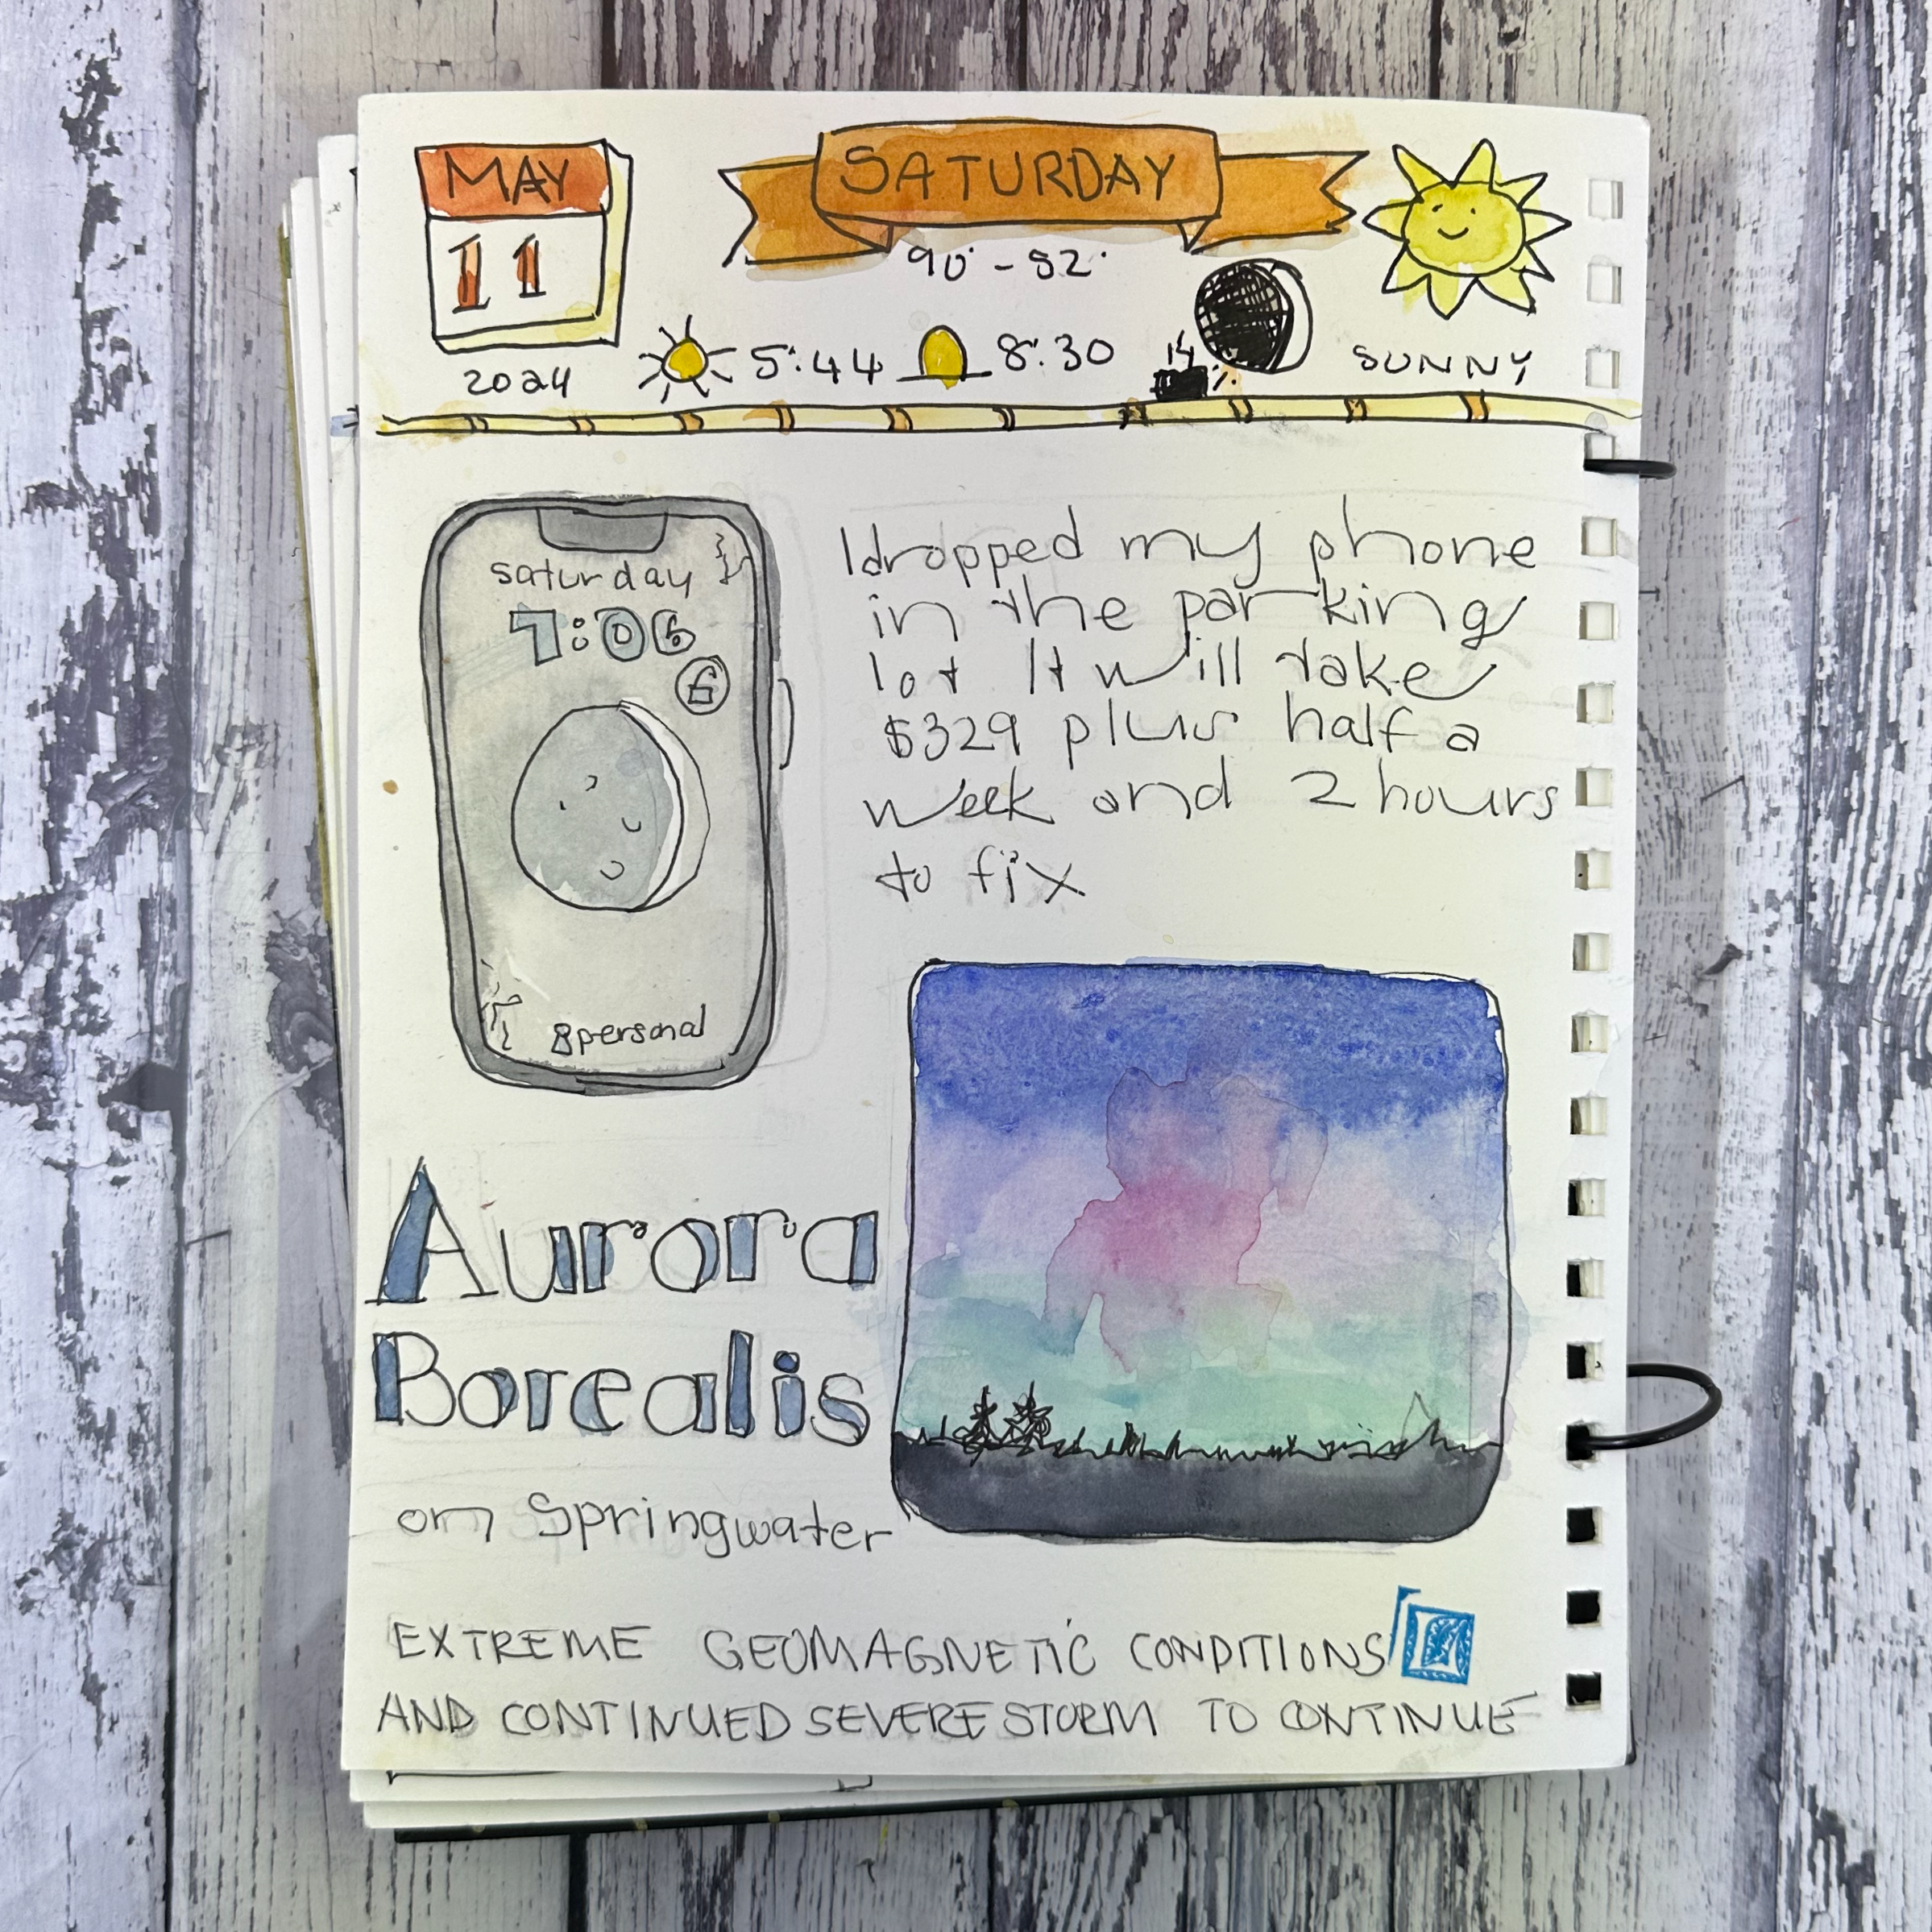 MAY
11
2024
SATURDAY
90° - 52°
5:44
8:30
SUNNY
saturday
7:06
6
8personal
I dropped my phone
in the parking
lot It will take
$329 plus half a
week and 2 hours
to fix
Aurora
Borealis
on Springwater
EXTREME GEOMAGNETIC CONDITIONS
AND CONTINUED SEVERE STORM TO CONTINUE